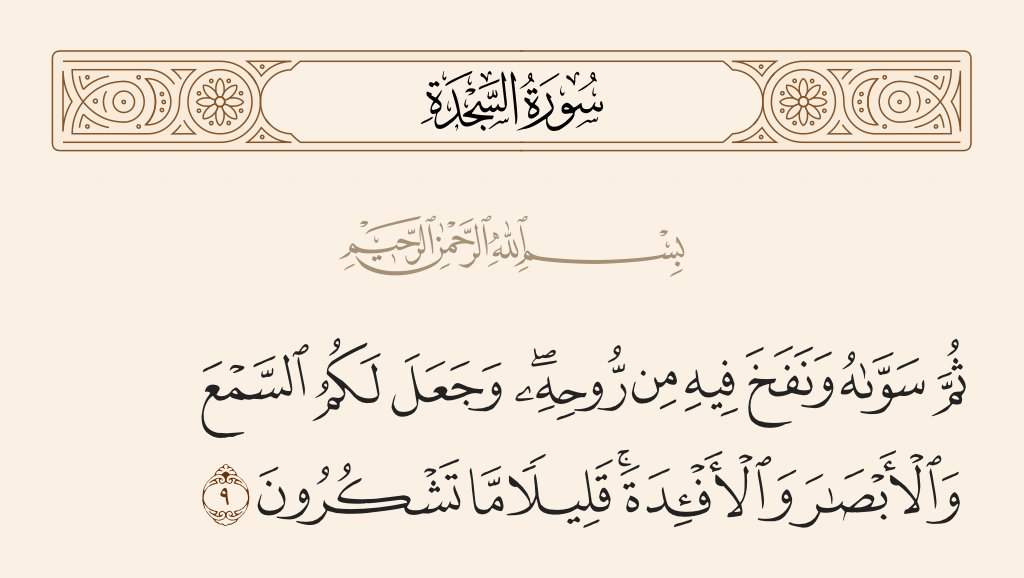 سُورَةُ السَّجْدَةِ
بِسْمِ ٱللَّهِ ٱلرَّحْمَٰنِ ٱلرَّحِيمِ
ثُمَّ سَوَّىٰهُ وَنَفَخَ فِيهِ مِن رُّوحِهِۦۖ وَجَعَلَ لَكُمُ ٱلسَّمْعَ
وَٱلْأَبْصَٰرَ وَٱلْأَفْـِٔدَةَۚ قَلِيلًا مَّا تَشْكُرُونَ ٩